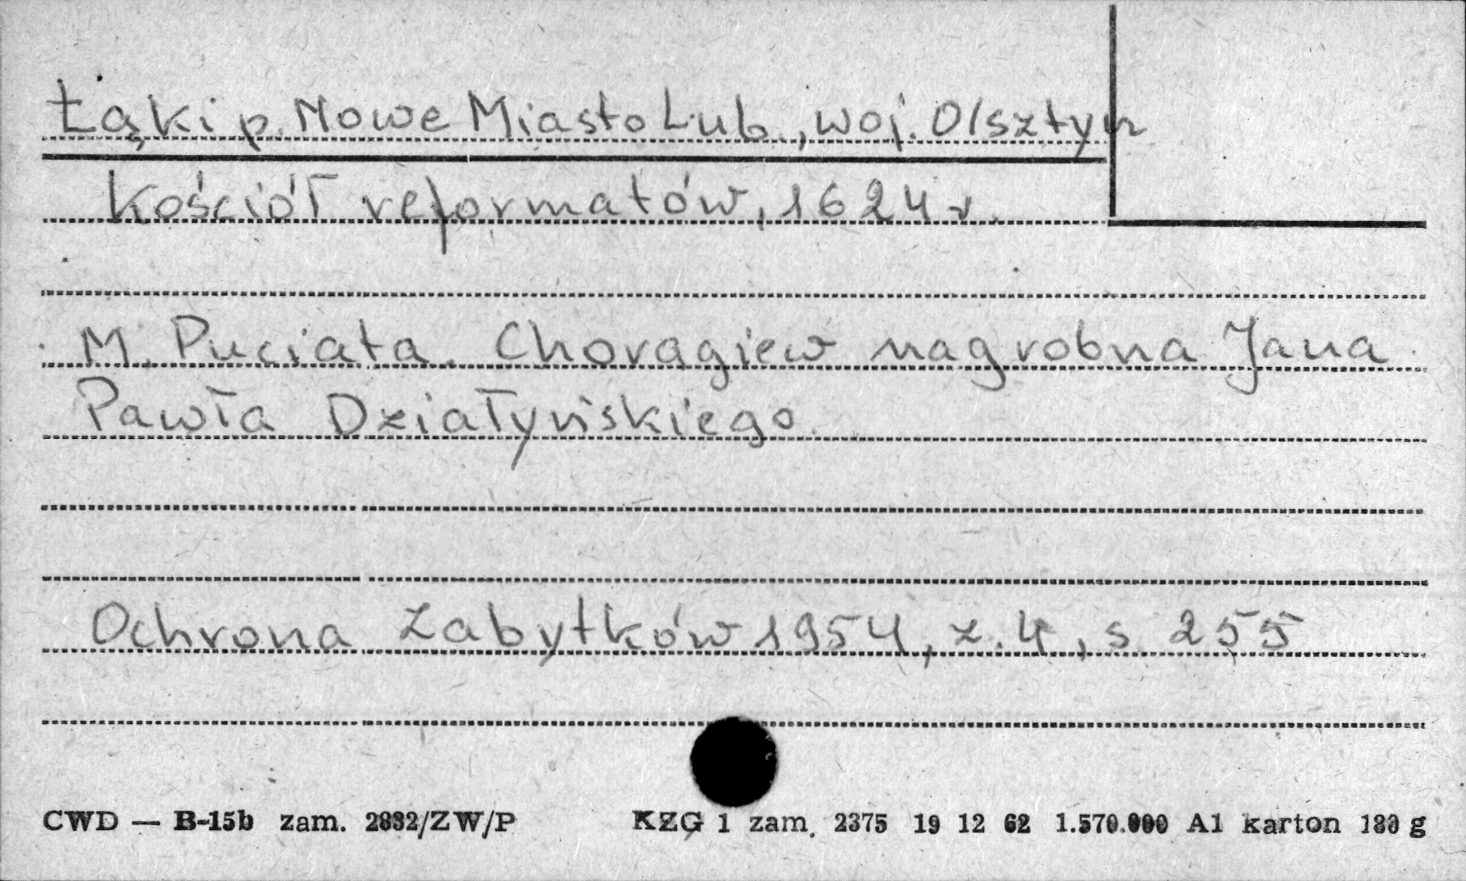 Łąki p. Nowe Miasto Lub., woj. Olsztyn
Kościół reformatów, 1624 r.
M. Puciata. Chorągiew nagrobna Jana
Pawła Działyńskiego.
Ochrona Zabytków 1954, z. 4, s. 255
CWD — B-15b zam. 2832/ZW/P KZG 1 zam. 2375 19 12 62 1.570.000 A1 karton 180 g